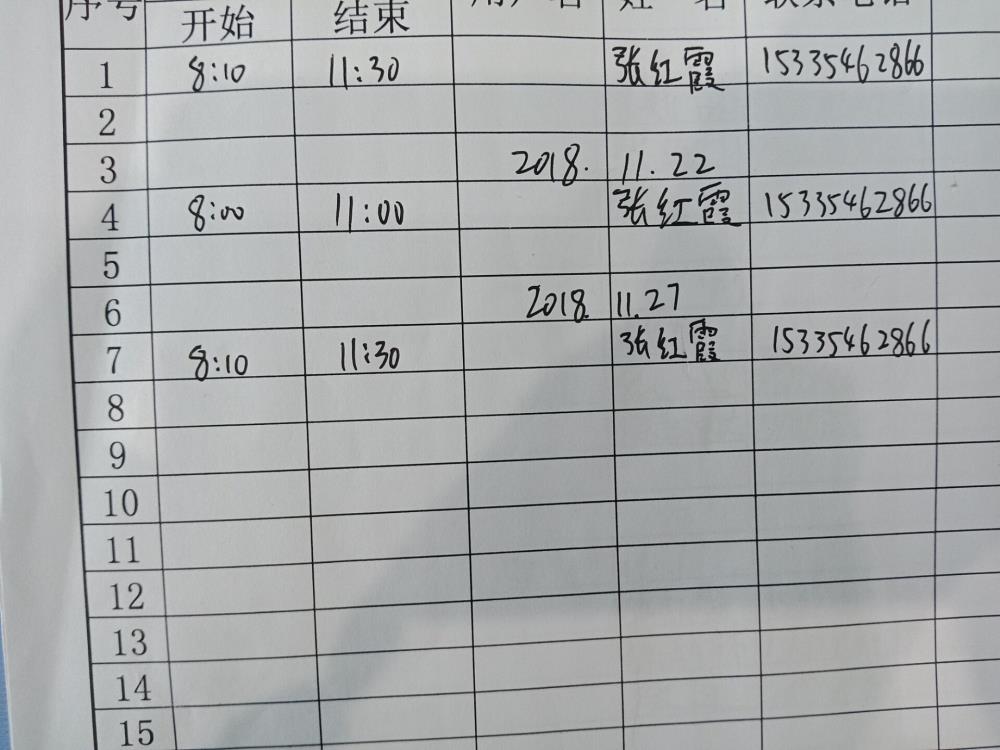 序号 开始 结束 用户名 姓 名 联系电话
1 8:10 11:30 张红霞 15335462866
2
3 2018. 11.22
4 8:00 11:00 张红霞 15335462866
5
6 2018. 11.27
7 8:10 11:30 张红霞 15335462866
8
9
10
11
12
13
14
15